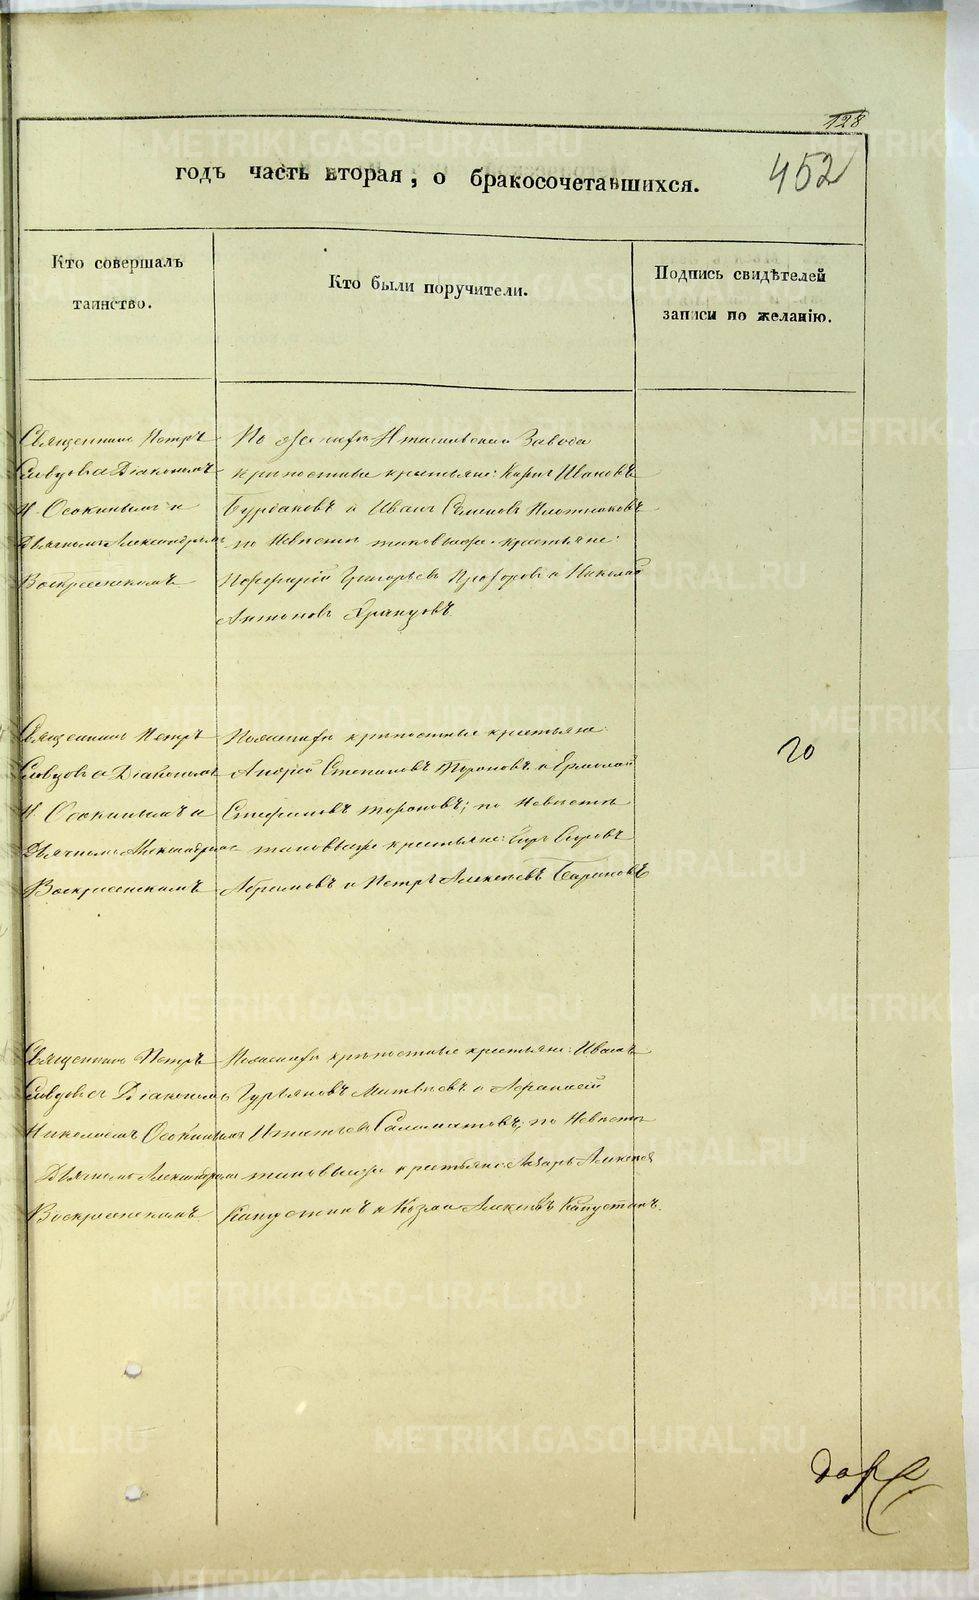 128
452
годъ часть вторая, о бракосочетавшихся.
Кто совершалъ
таинство.
Кто были поручители.
Подпись свидѣтелей
записи по желанію.
Священникъ Петръ
Словцовъ Діакономъ
Н Осокинымъ и
Дьячкомъ Александромъ
Воскресенскимъ
По женихѣ Завода
крѣпостные крестьяне: Иванъ
Бурдаковъ и Иванъ Семеновъ Плотниковъ
по Невѣстѣ таковыеже крестьяне:
Порфирій Григорьевъ Прозоровъ и Николай
Антоновъ
Священникъ Петръ
Словцовъ Діакономъ
Н Осокинымъ и
Дьячкомъ Александромъ
Воскресенскимъ
По женихѣ крѣпостные крестьяне:
Андрей Степановъ и Ермолай
по Невѣстѣ
таковыеже крестьяне:
Абрамовъ и Петръ Алексѣевъ Бариновъ
20
Священникъ Петръ
Словцовъ Діакономъ
Николаемъ Осокинымъ
Дьячкомъ Александромъ
Воскресенскимъ
По женихѣ крѣпостные крестьяне: Иванъ
Гурьяновъ и Афанасій
Игнатьевъ Саламатовъ; по Невѣстѣ
таковыеже крестьяне: Лазарь Алексѣевъ
Капустинъ и Козма Алексѣевъ Капустинъ.
METRIKI.GASO-URAL.RU